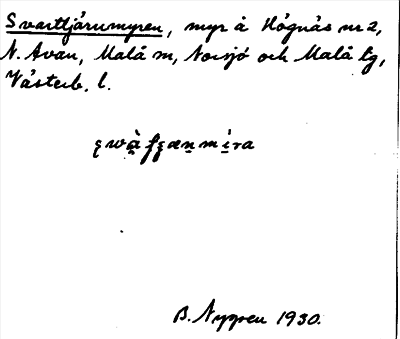 Svarttjärnmyren, myr å Högnäs nr 2,
N. Avan, Malå m, Norsjö och Malå tg,
Västerb. l.
B. Nygren 1930.